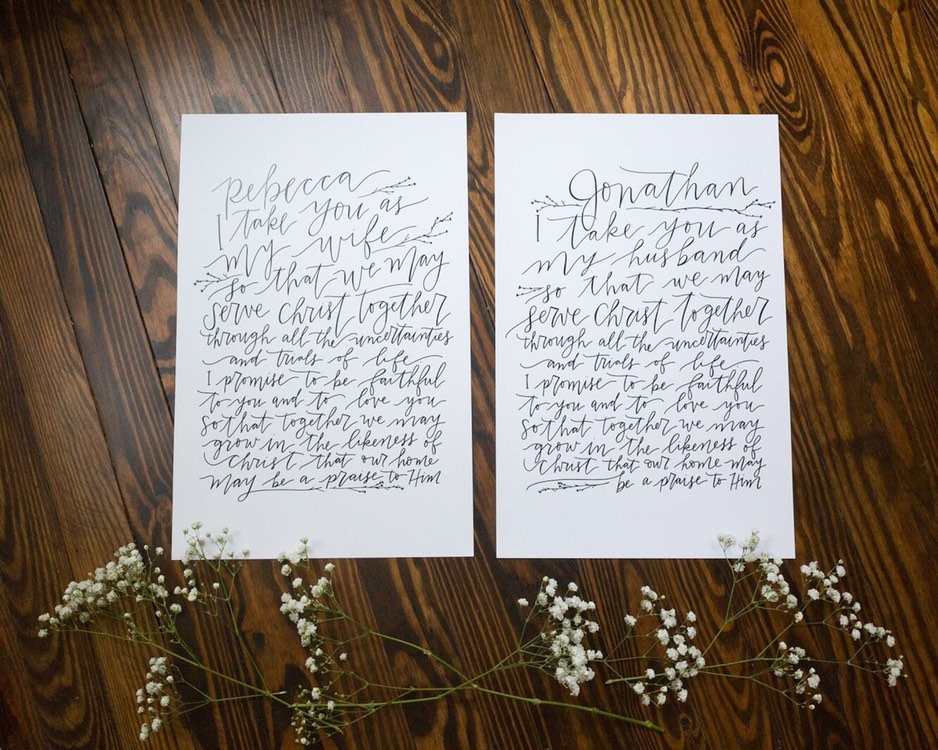 Rebecca
I take you as
my wife
so that we may
serve Christ together
through all the uncertainties
and trials of life
I promise to be faithful
to you and to love you
so that together we may
grow in the likeness of
Christ that our home
may be a praise to Him
Jonathan
I take you as
my husband
so that we may
serve Christ together
through all the uncertainties
and trials of life
I promise to be faithful
to you and to love you
so that together we may
grow in the likeness of
Christ that our home may
be a praise to Him